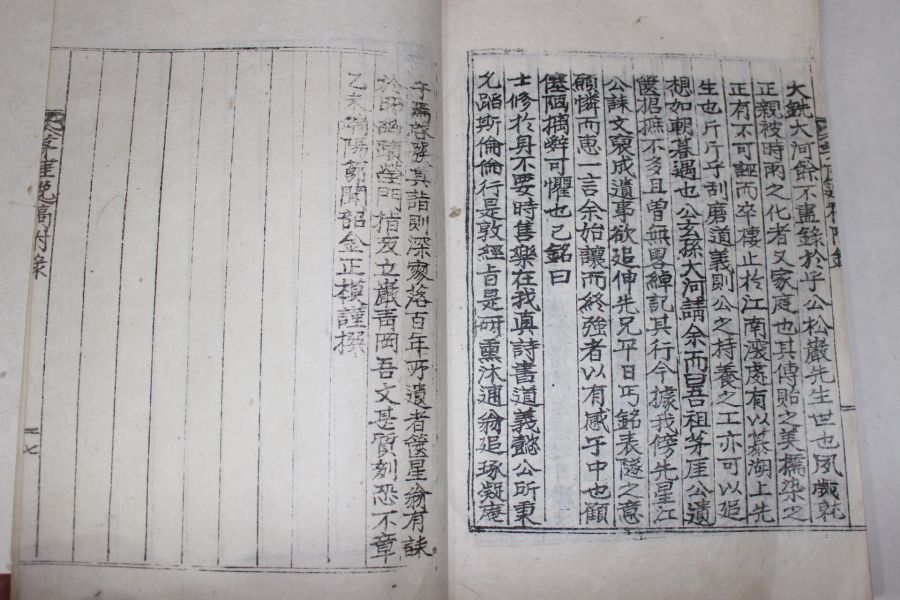 大銑大河餘不盡錄於乎公松巖先生世也夙歲就
正親被時雨之化者又家庭也其傳貽之美擩染之
正有不可誣而卒棲止於江南淺處有以綦湖上先
生也斤斤乎刮磨道義則公之持養之工亦可以追
想如朝暮遇也公玄孫大河請余而曰吾祖芧厓公遺
篋摭不多且曾無畧綽記其行今據我傍先星江
公誄文裒成遺事欲追伸先兄平日丐銘表隧之意
願憐而惠一言余始讓而終強者以有感于中也顧
僿陋摛辭可懼也已銘曰
士修於身不要時售樂在我眞詩書道義懿公所秉
允蹈斯倫倫行是敦經旨是研熏沐逋翁追琢凝庵
子爲啓發其詣則深寥落百年所遺者篋星翁有誄
於昭幽門指立巖靑岡吾文甚質刻恐不章
乙未端陽節聞韶金正模謹撰
芧厓逸稿附錄
三七